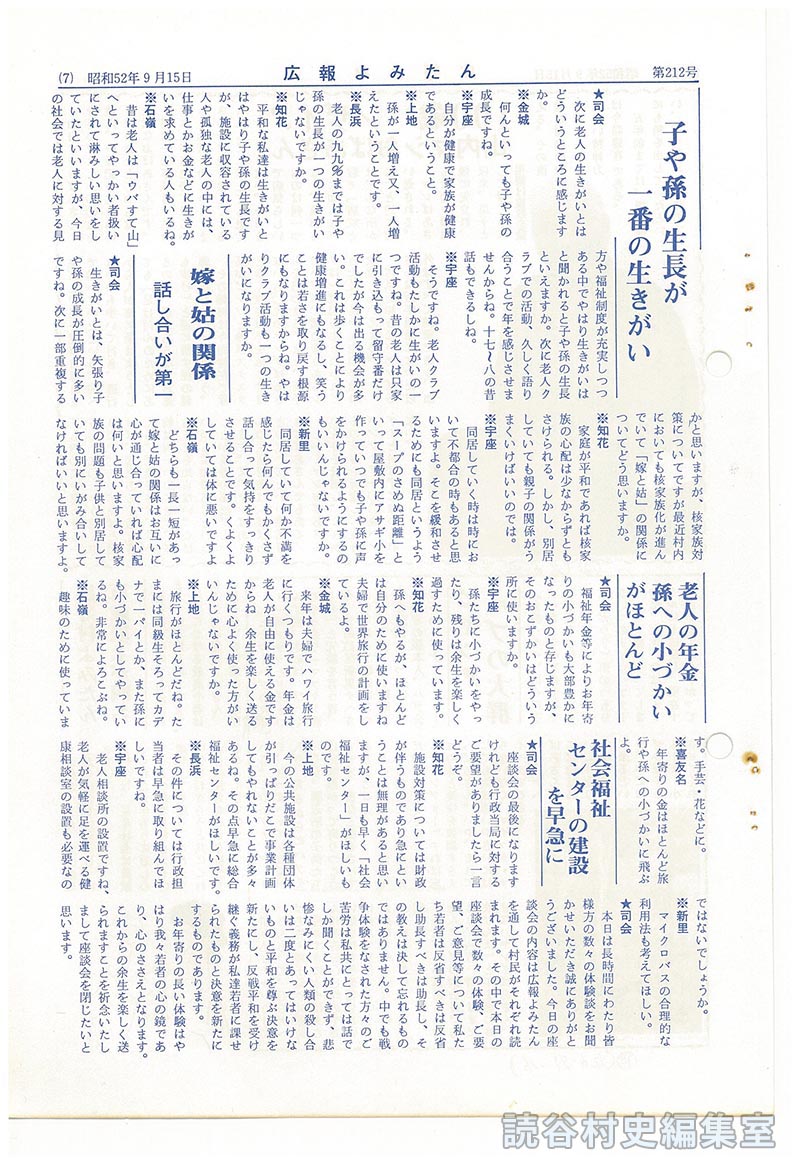 (7) 昭和52年9月15日
広報よみたん
第212号
子や孫の生長が
一番の生きがい
★司会
次に老人の生きがいとは
どういうところに感じます
か。
※金城
何んといっても子や孫の
成長ですね。
※宇座
自分が健康で家族が健康
であるということ。
※上地
孫が一人増え又、一人増
えたということです。
※長浜
老人の九九％までは子や
孫の生長が一つの生きがい
じゃないですか。
※知花
平和な私達は生きがいと
はやはり子や孫の生長です
が、施設に収容されている
人や孤独な老人の中には、
仕事とかお金などに生きが
いを求めている人もいるね。
※石嶺
昔は老人は「ウバすて山」
へといってやっかい者扱い
にされて淋みしい思いをし
ていたといいますが、今日
の社会では老人に対する見
方や福祉制度が充実しつつ
ある中でやはり生きがいは
と聞かれると子や孫の生長
といえますか。次に老人ク
ラブでの活動、久しく語り
合うことで年を感じさせま
せんからね。十七〜八の昔
話もできるしね。
※宇座
そうですね。老人クラブ
活動もたしかに生がいの一
つですね。昔の老人は只家
に引き込もって留守番だけ
でしたが今は出る機会が多
い。これは歩くことにより
健康増進にもなるし、笑う
ことは若さを取り戻す根源
にもなりますからね。やは
りクラブ活動も一つの生き
がいになりますか。
嫁と姑の関係
話し合いが第一
★司会
生きがいとは、矢張り子
や孫の成長が圧倒的に多い
ですね。次に一部重複する
かと思いますが、核家族対
策についてですが最近村内
においても核家族化が進ん
でいて「嫁と姑」の関係に
ついてどう思いますか。
※知花
家庭が平和であれば核家
族の心配は少なからずとも
さけられる。しかし、別居
していても親子の関係がう
まくいけばいいのでは。
※宇座
同居していく時は時にお
いて不都合の時もあると思
いますよ。そこを緩和させ
るためにも同居というよう
「スープのさめぬ距離」と
いって屋敷内にアサギ小を
作っていつでも子や孫に声
をかけられるようにするの
もいいんじゃないですか。
※新里
同居していて何か不満を
感じたら何んでもかくさず
話し合って気持をすっきり
させることです。くよくよ
していては体に悪いですよ
※石嶺
どちらも一長一短があっ
て嫁と姑の関係はお互いに
心が通じ合っていれば心配
は何いと思いますよ。核家
族の問題も子供と別居して
いても別にいがみ合いして
なければいいと思いますよ。
老人の年金
孫への小づかい
がほとんど
★司会
福祉年金等によりお年寄
りの小づかいも大部豊かに
なったものと存じますが、
そのおこずかいはどういう
所に使いますか。
※宇座
孫たちに小づかいをやっ
たり、残りは余生を楽しく
過すために使っています。
※知花
孫へもやるが、ほとんど
は自分のために使いますね
夫婦で世界旅行の計画をし
ているよ。
※金城
来年は夫婦でハワイ旅行
に行くつもりです。年金は
老人が自由に使える金です
からね　余生を楽しく送る
ために心よく使った方がい
いんじゃないですか。
※上地
旅行がほとんどだね。た
まには同級生そろってカデ
ナで一パイとか、また孫に
も小づかいとしてやってい
るね。非常によろこぶね。
※石嶺
趣味のために使っていま
す。手芸・花などに。
※喜友名
年寄りの金はほとんど旅
行や孫への小づかいに飛ぶ
よ。
社会福祉
センターの建設
を早急に
★司会
座談会の最後になります
けれども行政当局に対する
ご要望がありましたら一言
どうぞ。
※知花
施設対策については財政
が伴うものであり急にとい
うことは無理があると思い
ますが、一日も早く「社会
福祉センター」がほしいも
のです。
※上地
今の公共施設は各種団体
が引っぱりだこで事業計画
してもやれないことが多々
あるね。その点早急に総合
福祉センターがほしいです。
※長浜
その件については行政担
当者は早急に取り組んでほ
しいですね。
※宇座
老人相談所の設置ですね、
老人が気軽に足を運べる健
康相談室の設置も必要なの
ではないでしょうか。
※新里
マイクロバスの合理的な
利用法も考えてほしい。
★司会
本日は長時間にわたり皆
様方の数々の体験談をお聞
かせいただき誠にありがと
うございました。今日の座
談会の内容は広報よみたん
を通して村民がそれぞれ読
まれます。その中で本日の
座談会で数々の体験、ご要
望、ご意見等について私た
ち若者は反省すべきは反省
し助長すべきは助長し、そ
の教えは決して忘れるもの
ではありません。中でも戦
争体験をなされた方々のご
苦労は私共にとっては話で
しか聞くことができず、悲
惨なみにくい人類の殺し合
いは二度とあってはいけな
いものと平和を尊ぶ決意を
新たにし、反戦平和を受け
継ぐ義務が私達若者に課せ
られたものと決意を新たに
するものであります。
お年寄りの長い体験はや
はり我々若者の心の鏡であ
り、心のささえとなります。
これからの余生を楽しく送
られますことを祈念いたし
まして座談会を閉じたいと
思います。
読谷村史編集室